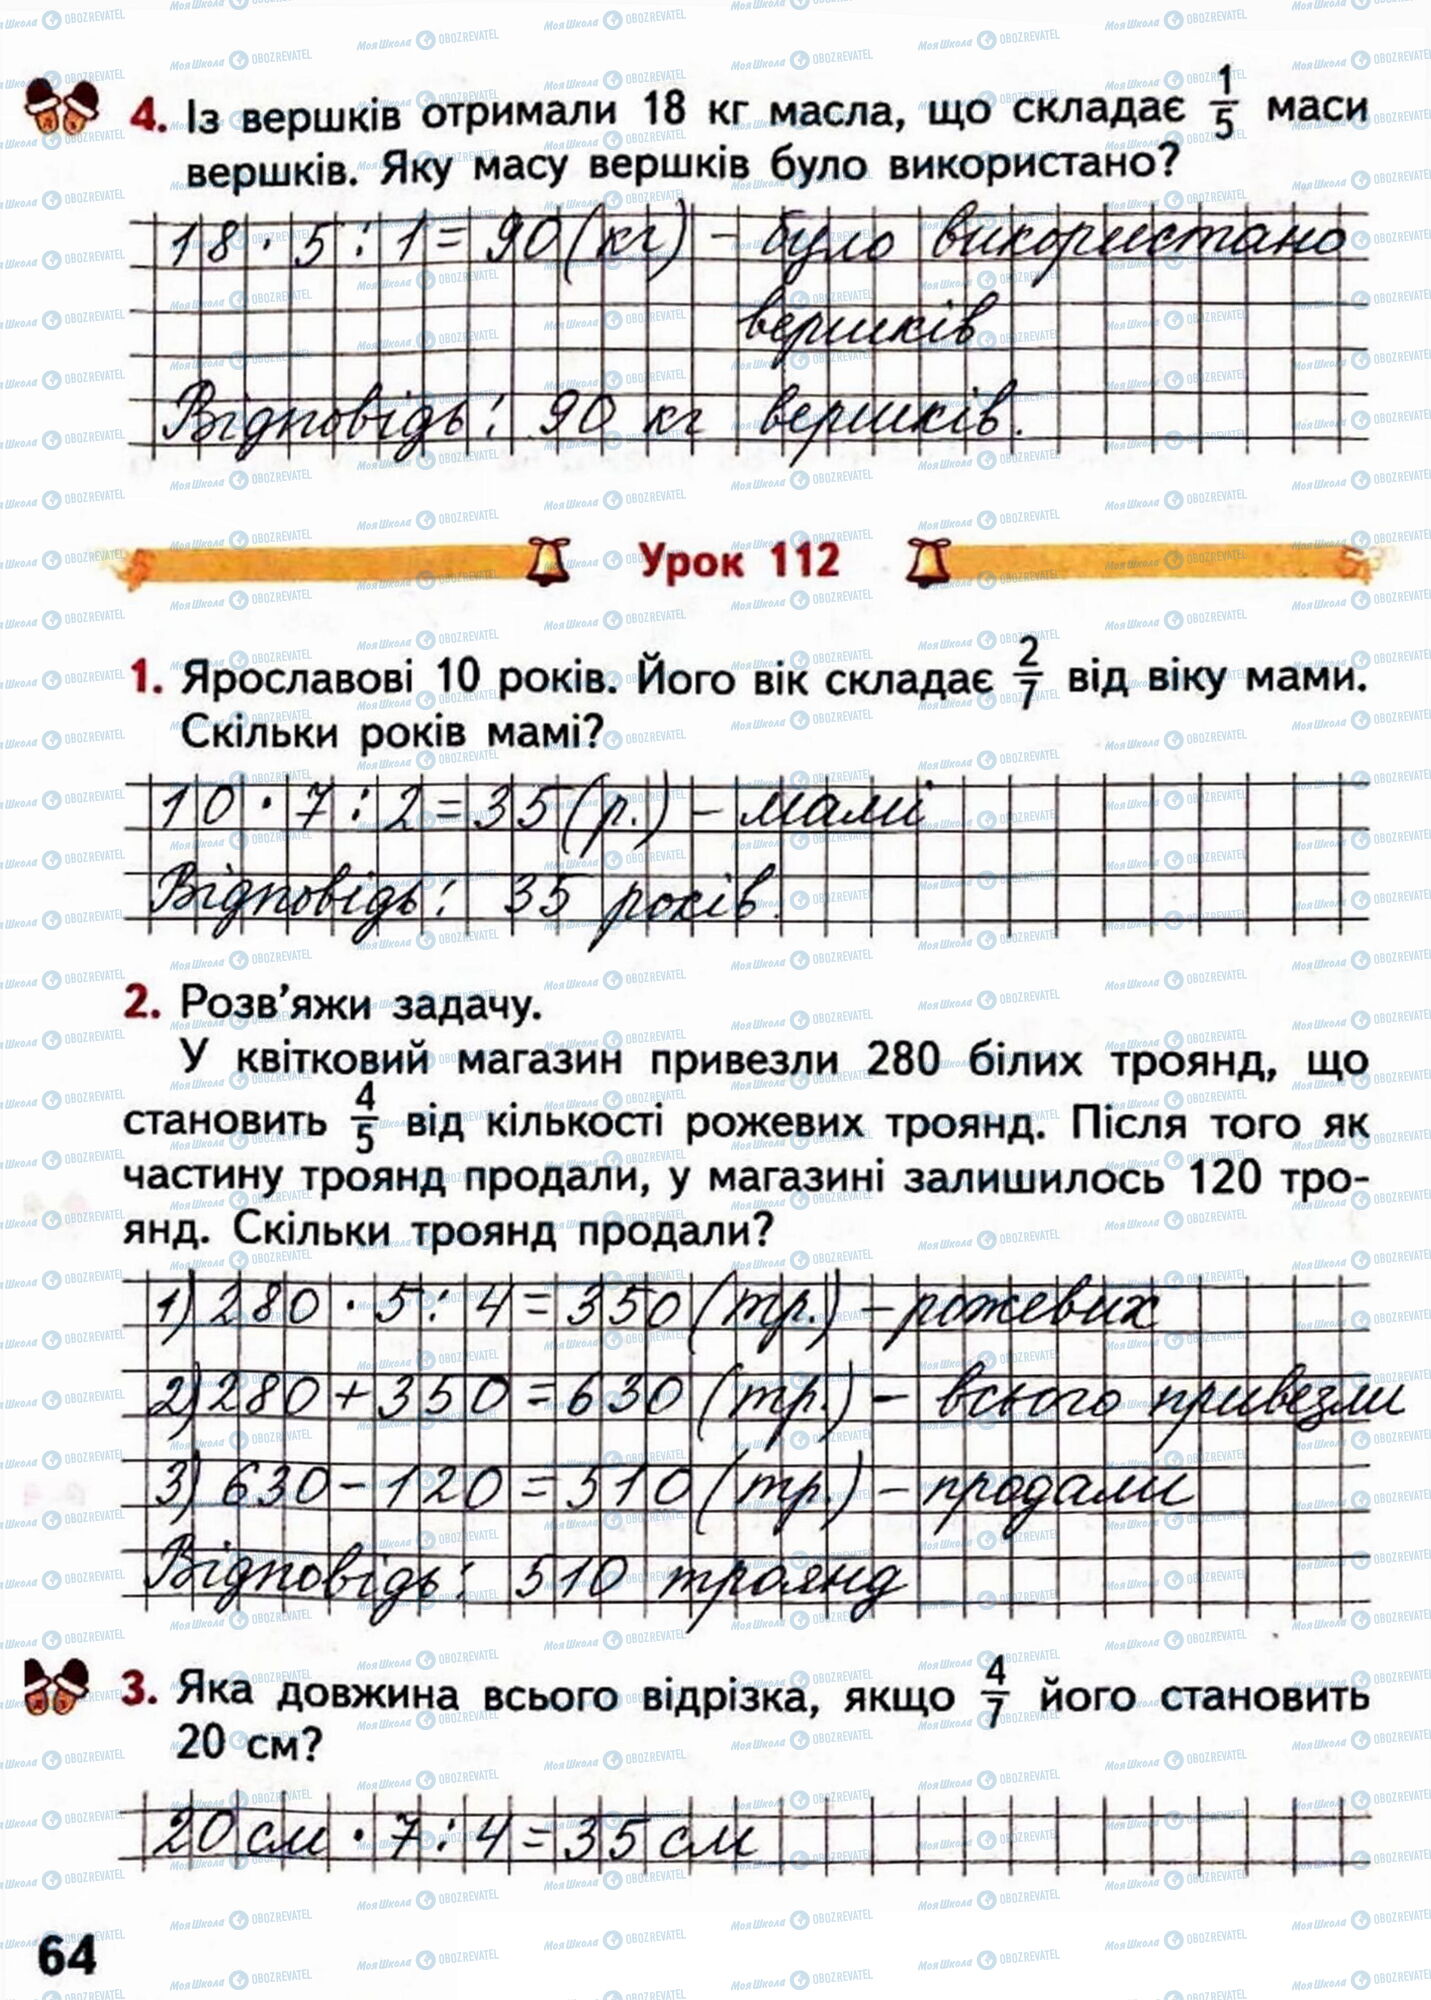 4. Із вершків отримали 18 кг масла, що складає 1/5 маси
вершків. Яку масу вершків було використано?
18 · 5 : 1 = 90 (кг) – було використано
вершків
Відповідь: 90 кг вершків.
Урок 112
1. Ярославові 10 років. Його вік складає 2/7 від віку мами.
Скільки років мамі?
10 · 7 : 2 = 35 (р.) – мамі
Відповідь: 35 років.
2. Розв'яжи задачу.
У квітковий магазин привезли 280 білих троянд, що
становить 4/5 від кількості рожевих троянд. Після того як
частину троянд продали, у магазині залишилось 120 тро-
янд. Скільки троянд продали?
1) 280 · 5 : 4 = 350 (тр.) – рожевих
2) 280 + 350 = 630 (тр.) – всього привезли
3) 630 – 120 = 510 (тр.) – продали
Відповідь: 510 троянд
3. Яка довжина всього відрізка, якщо 4/7 його становить
20 см?
20 см · 7 : 4 = 35 см
64
МояШкола OBOZREVATEL